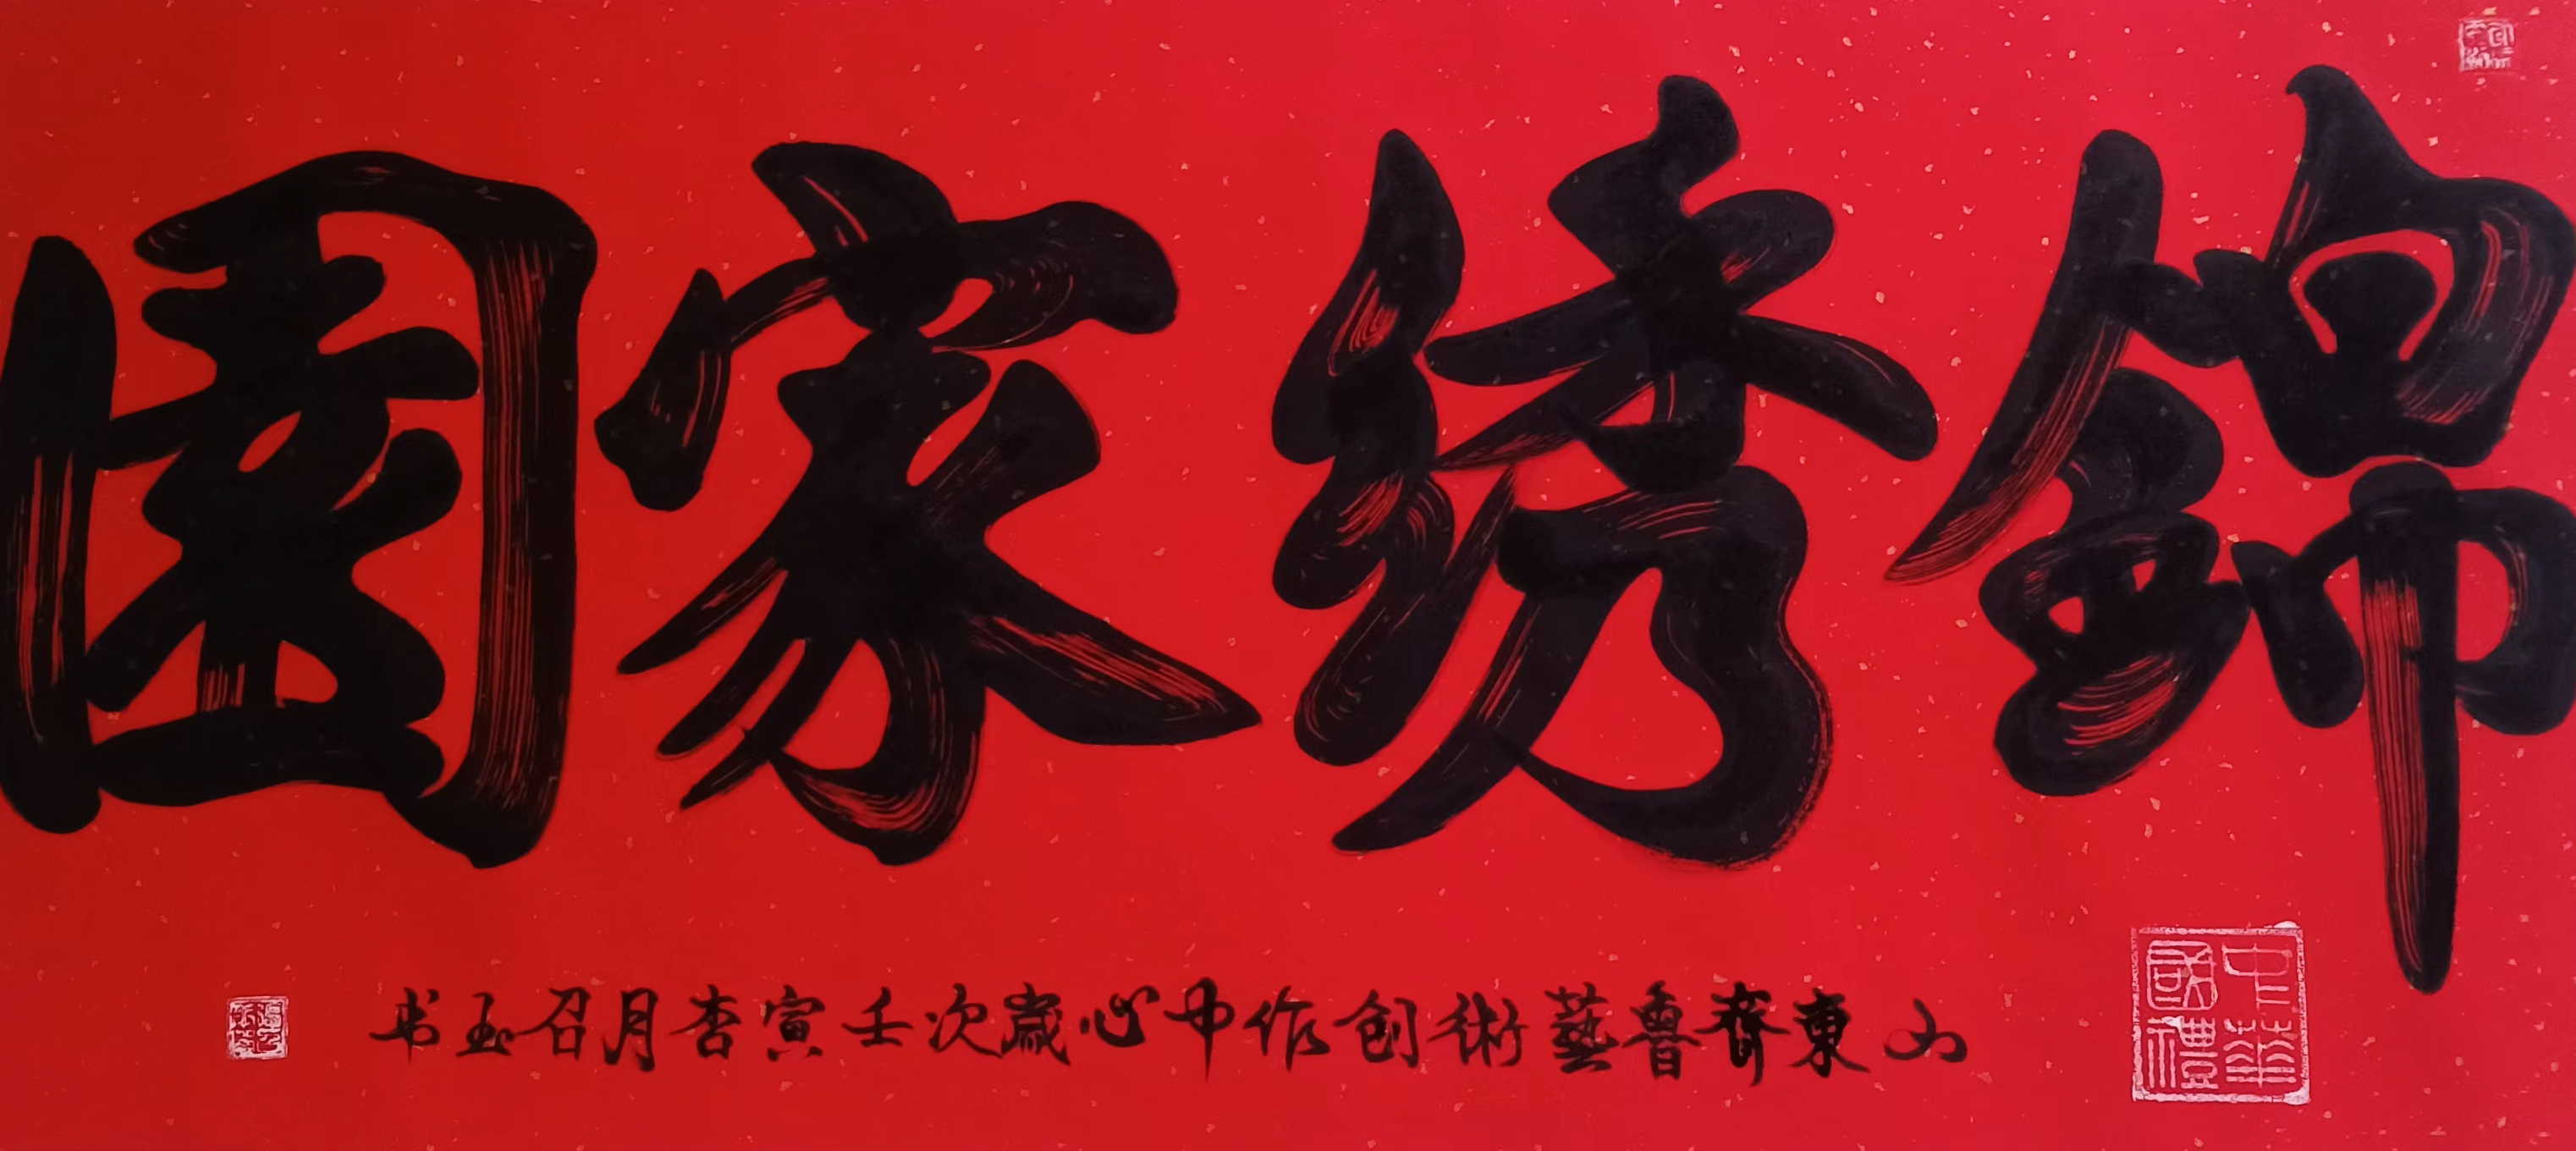 錦绣家園
山東齊魯藝術创作中心歲次壬寅杏月召玉书
中華國禮